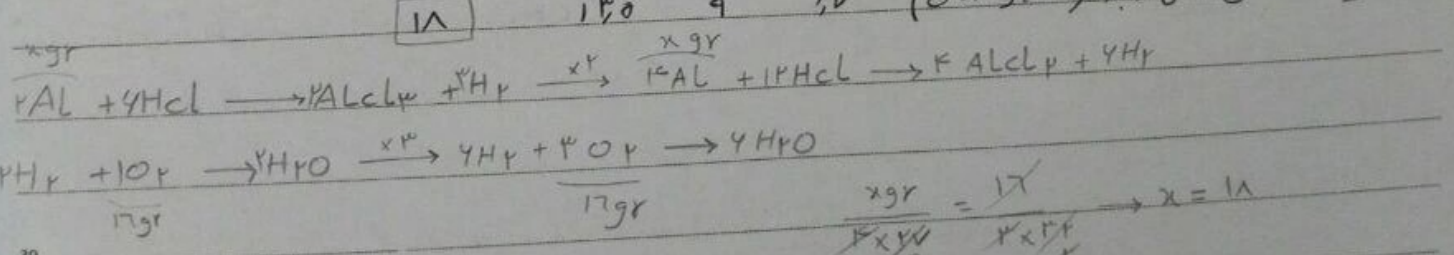 ۱۸ ۱۳٫۵ ۹
xgr xgr
۲Al + ۶Hcl → ۲Alcl۳ + ۳H۲ ×۲→ ۴Al + ۱۲Hcl → ۴ Alcl۳ + ۶H۲
۲H۲ + ۱O۲ → ۲H۲O ×۳→ ۶H۲ + ۳O۲ → ۶H۲O
۱۶gr ۱۶gr
xgr/۴×۲۷ = ۱۶/۳×۳۲ → x = ۱۸